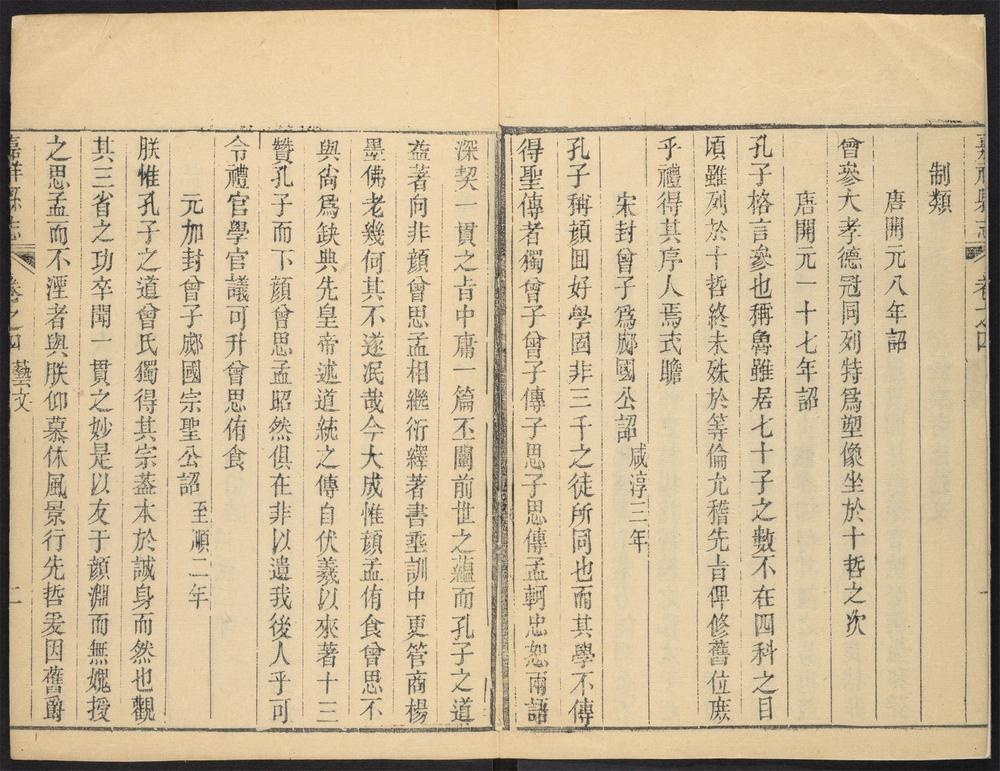 制類
唐開元八年詔
曾參大孝德冠同列特爲塑像坐於十哲之次
唐開元一十七年詔
孔子格言參也稱魯雖居七十子之數不在四科之目
頃雖列於十哲終未殊於等倫允稽先㫖俾修舊位庶
乎禮得其序人焉式瞻
宋封曾子爲郕國公詔 咸淳三年
孔子稱顔回好學固非三千之徒所同也而其學不傳
得聖傳者獨曾子曾子傳子思子思傳孟軻忠恕兩語
深契一貫之㫖中庸一篇丕闡前世之蘊而孔子之道
益著向非顔曾思孟相繼衍繹著書埀訓中更管商楊
墨佛老幾何其不遂泯哉今大成惟顔孟侑食曾思不
與尙爲缺典先皇帝述道統之傳自伏羲以來著十三
贊孔子而下顔曾思孟昭然俱在非以遺我後人乎可
令禮官學官議可升曾思侑食
元加封曾子郕國宗聖公詔 至順二年
朕惟孔子之道曾氏獨得其宗葢本於誠身而然也觀
其三省之功卒聞一貫之妙是以友于顔淵而無媿授
之思孟而不湮者與朕仰慕休風景行先哲爰因舊爵
嘉祥縣志 卷之四 藝文 二